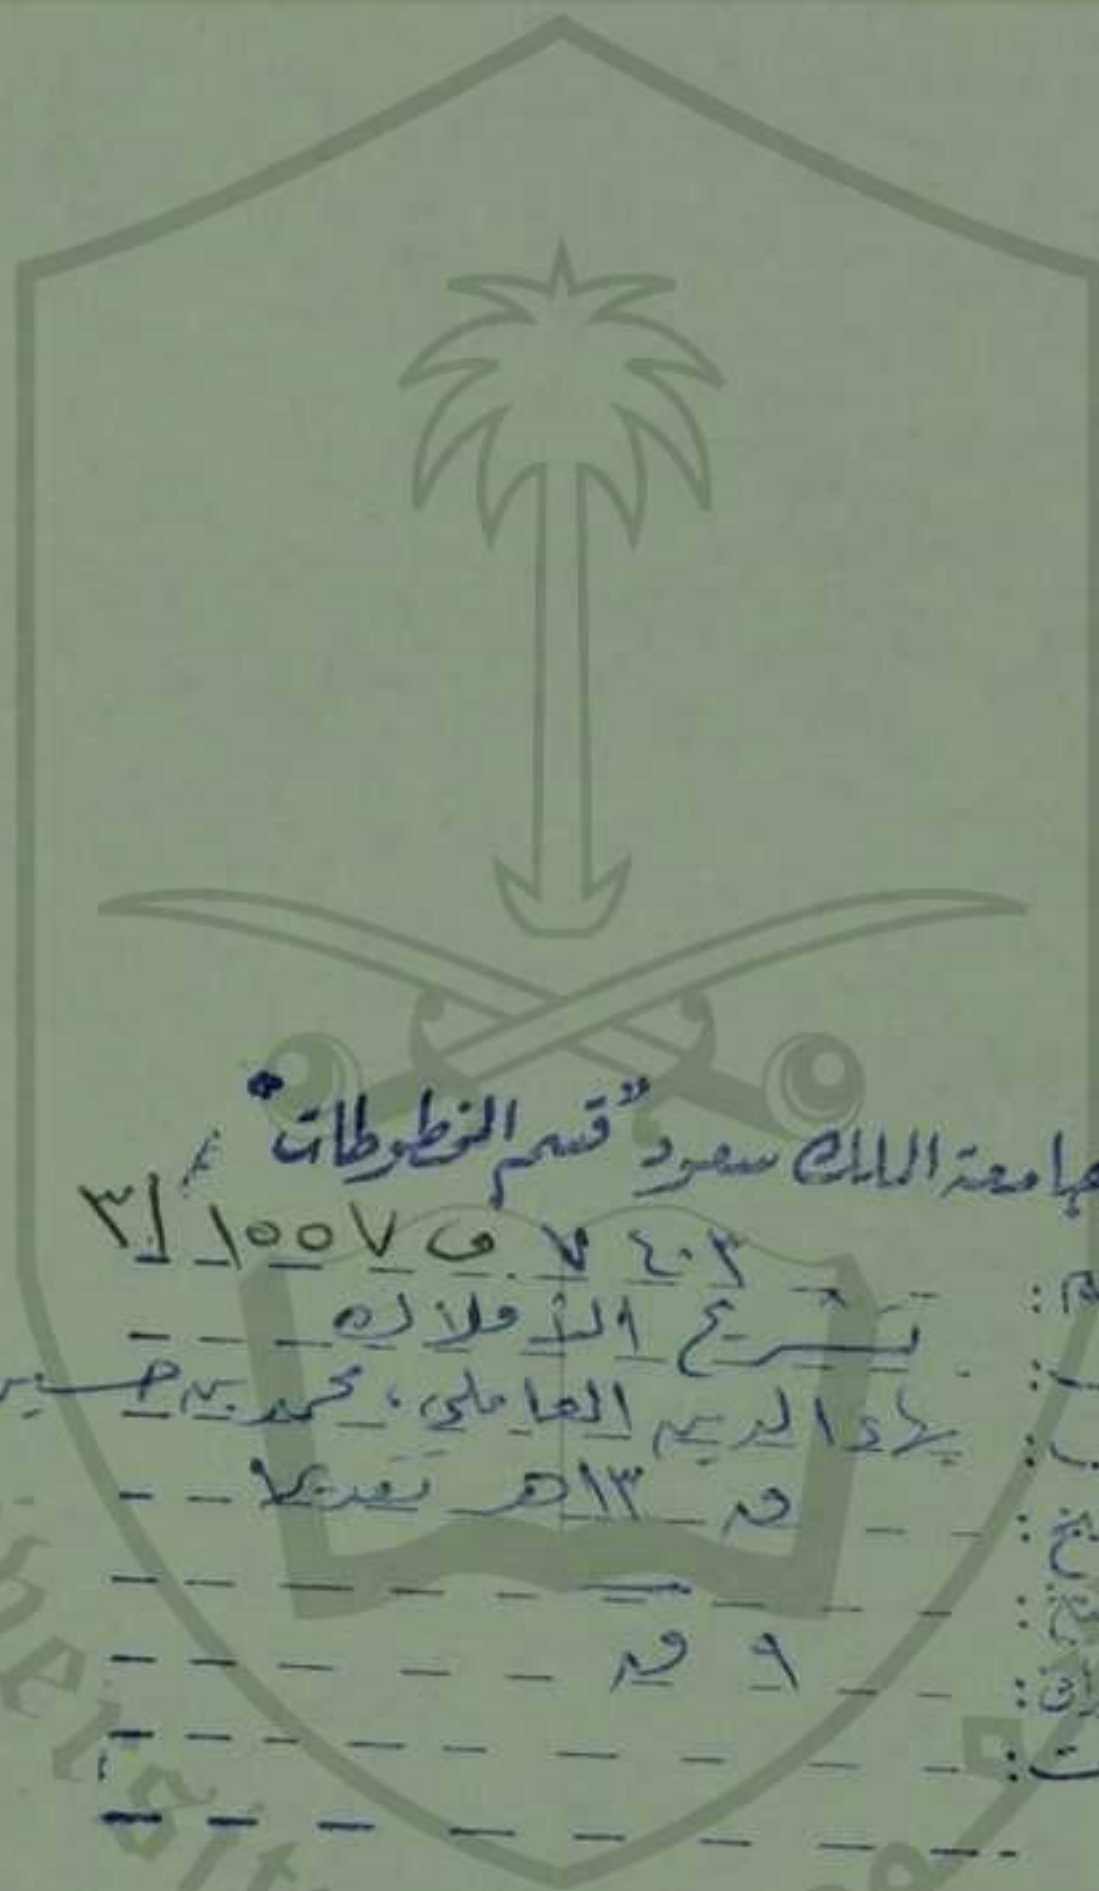 جامعة الملك سعود "قسم المخطوطات"
٧٤٠٣ ف ١٠٠٧ / ٣
تشريح الأفلاك
بهاء الدين العاملي، محمد بن حسين
ق ١٣هـ تقديرا
٩ ق